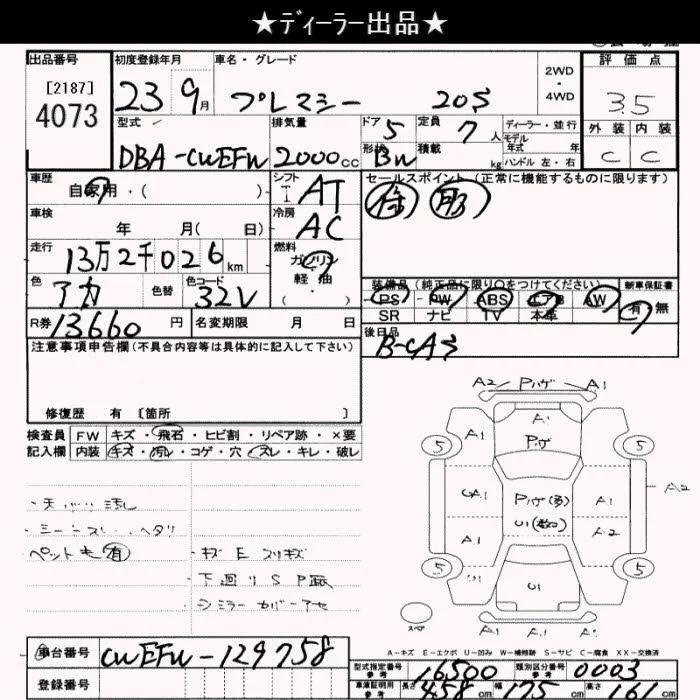 ★ディーラー出品★
出品番号 初度登録年月 車名・グレード 2WD・4WD 評価点
[2187]
4073 23 9月 プレマシー 20S 3.5
型式 排気量 ドア 5 定員 7人 ディーラー・並行 外装 内装
DBA-CWEFW 2000cc 形状 BW 積載 kg モデル年式 年 C C
ハンドル 左・右
車歴 シフト セールスポイント (正常に機能するものに限ります)
自家用・( ) AT
車検 冷房
年 月( 日) AC
走行 燃料
13万2千026km ガソリン
軽油
・( )
色 色替 色コード 装備品 (純正品に限り○をつけてください) 新車保証書
アカ 32V PS PW ABS エアB AW 有 無
SR ナビ TV 本革
R券 13660円 名変期限 月 日 後日品
B-CAS
注意事項申告欄(不具合内容等は具体的に記入して下さい)
修復歴 有 〔箇所 〕
検査員 FW キズ・飛石・ヒビ割・リペア跡・×要
記入欄 内装 キズ・汚れ・コゲ・穴・スレ・キレ・破レ
A2 Pハゲ A1
A1 A1
Pハゲ
5 5
CA1 Pハゲ(多) A1 A2
U1(数コ)
A1 A2
・ペット毛有
・キズ E スリキズ
・下廻り S P跡
5 5
U1
スペア A1 A1 A1
A-キズ E-エクボ U-凹み W-補修跡 S-サビ C-腐食 XX-交換済
車台番号 CWEFW-129758 型式指定番号 参考 16500 類別区分番号 参考 0003
登録番号 車庫証明用 参考 長さ 458cm 幅 175cm 高さ 161cm